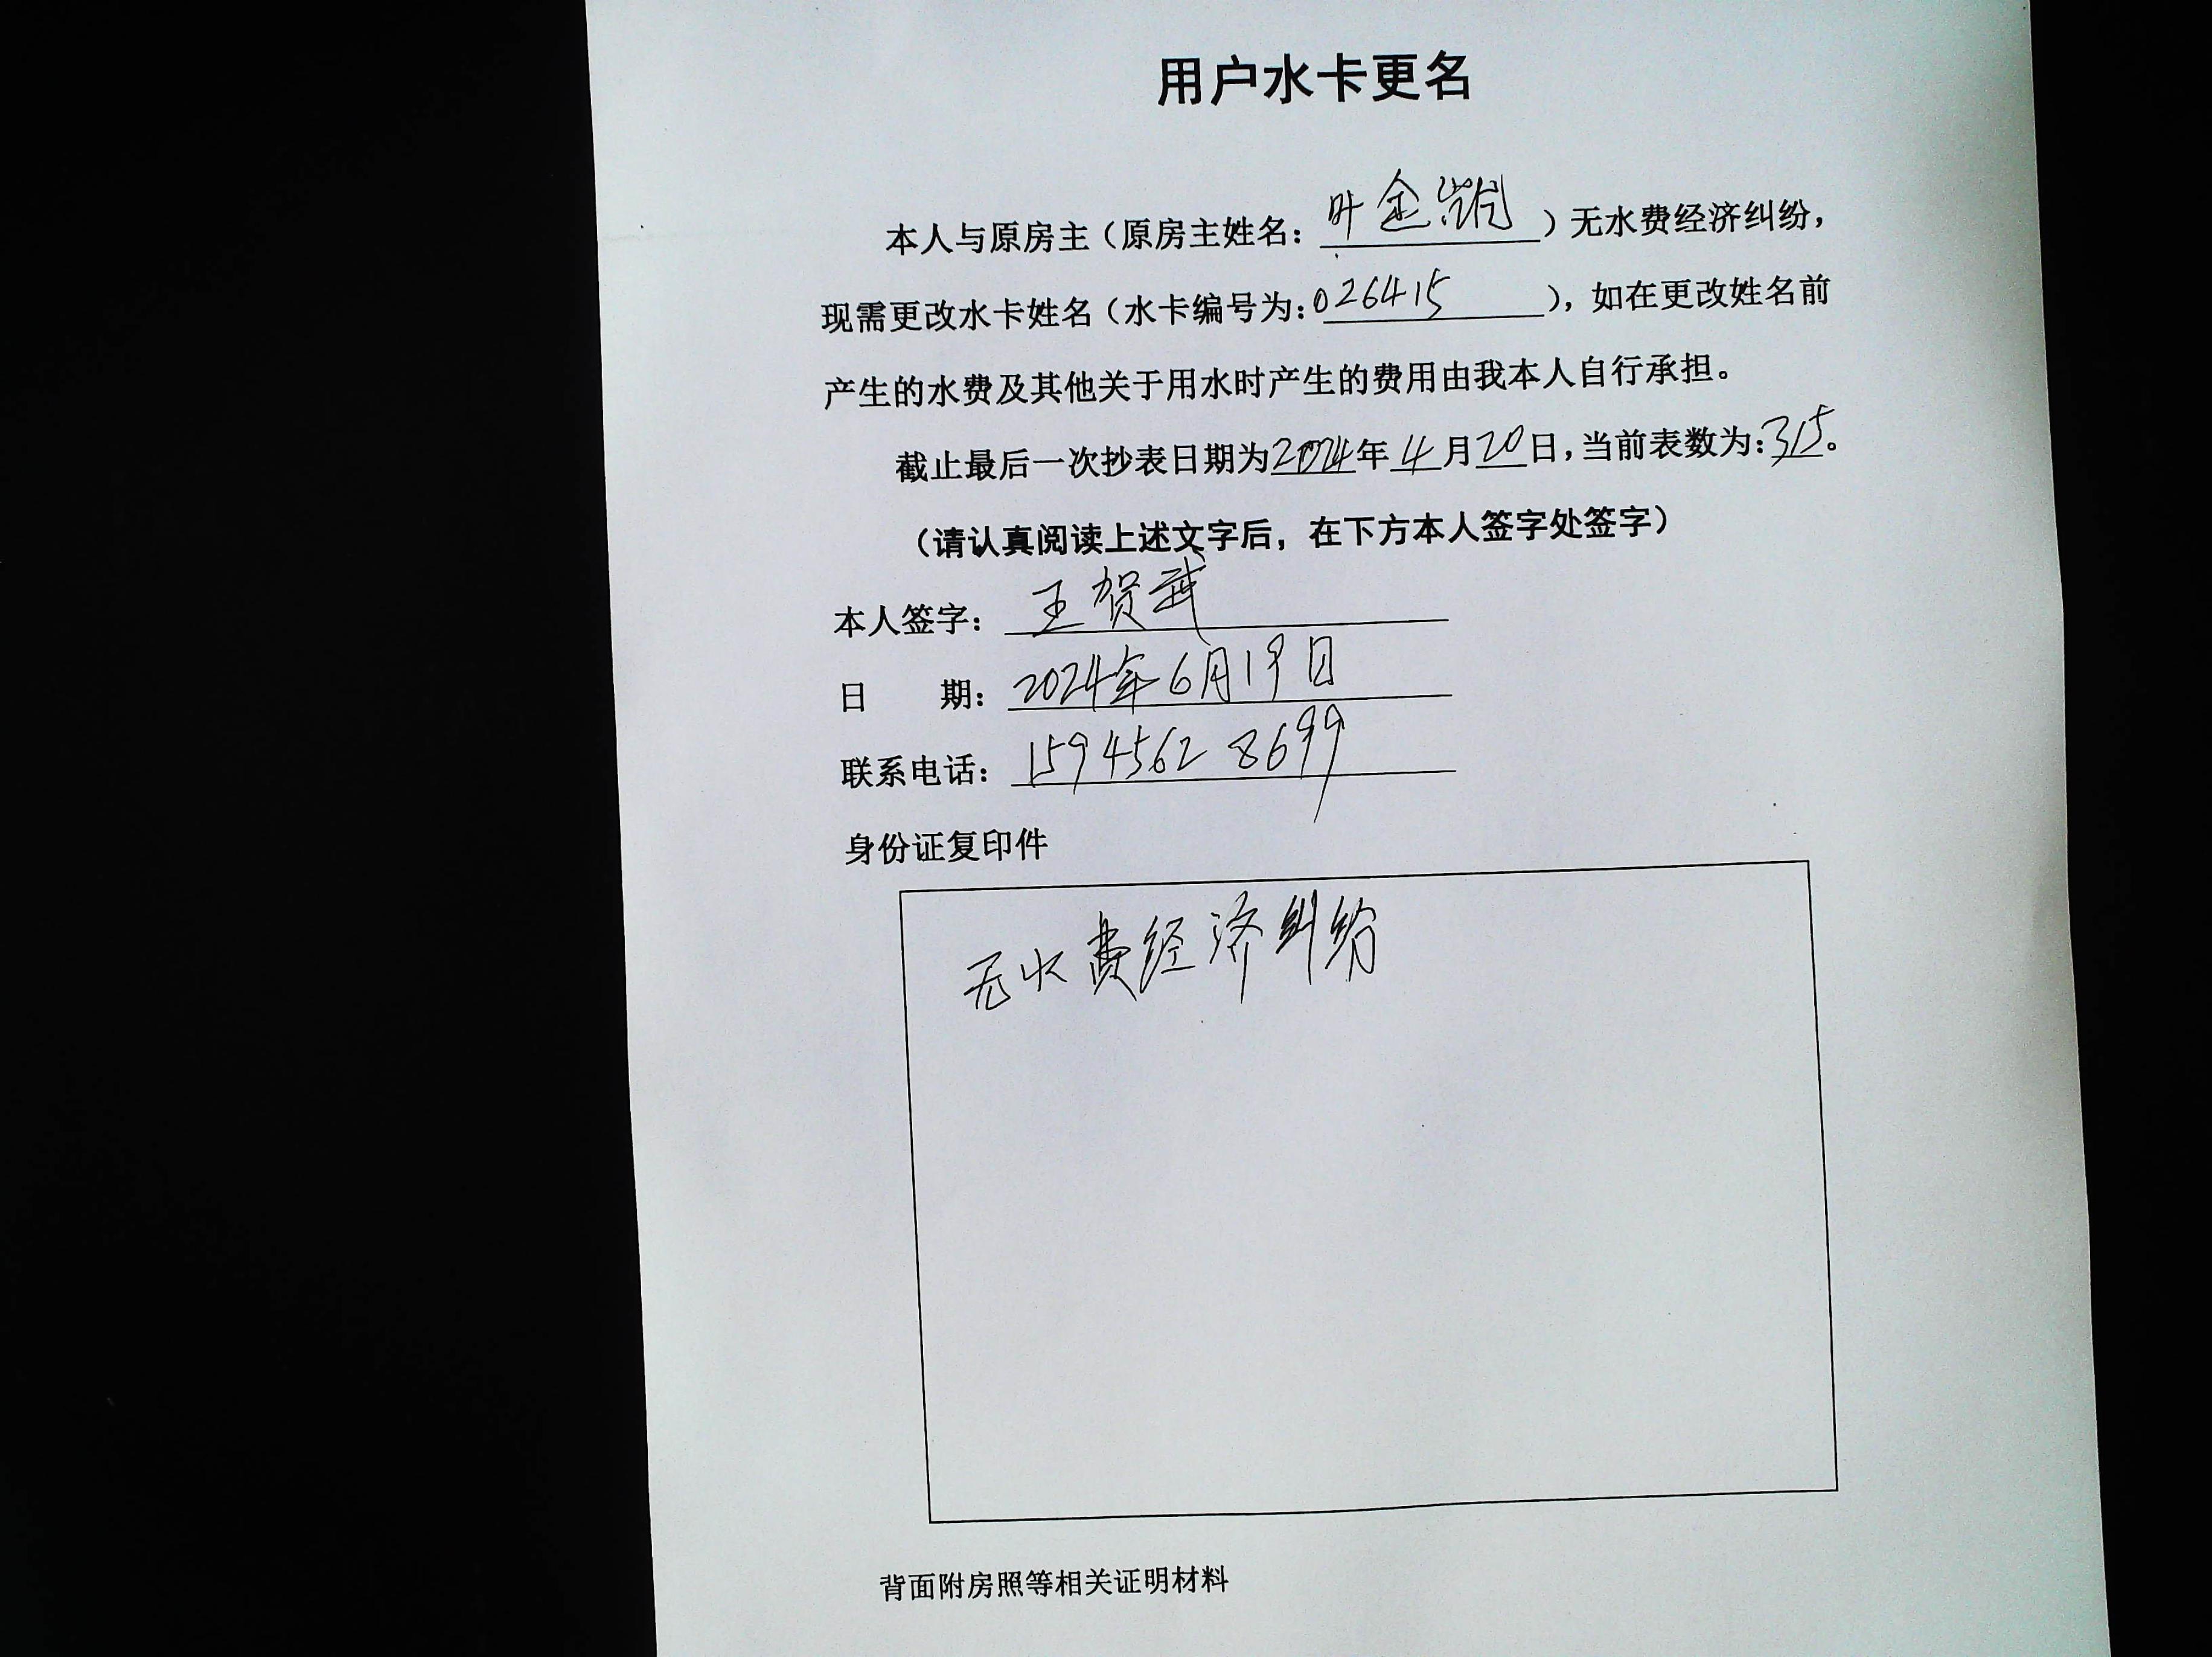 用户水卡更名
本人与原房主（原房主姓名：叶金）无水费经济纠纷，
现需更改水卡姓名（水卡编号为：026415），如在更改姓名前
产生的水费及其他关于用水时产生的费用由我本人自行承担。
截止最后一次抄表日期为2024年4月20日，当前表数为：315。
（请认真阅读上述文字后，在下方本人签字处签字）
本人签字：王贺武
日 期：2024年6月19日
联系电话：15945628699
身份证复印件
无水费经济纠纷
背面附房照等相关证明材料